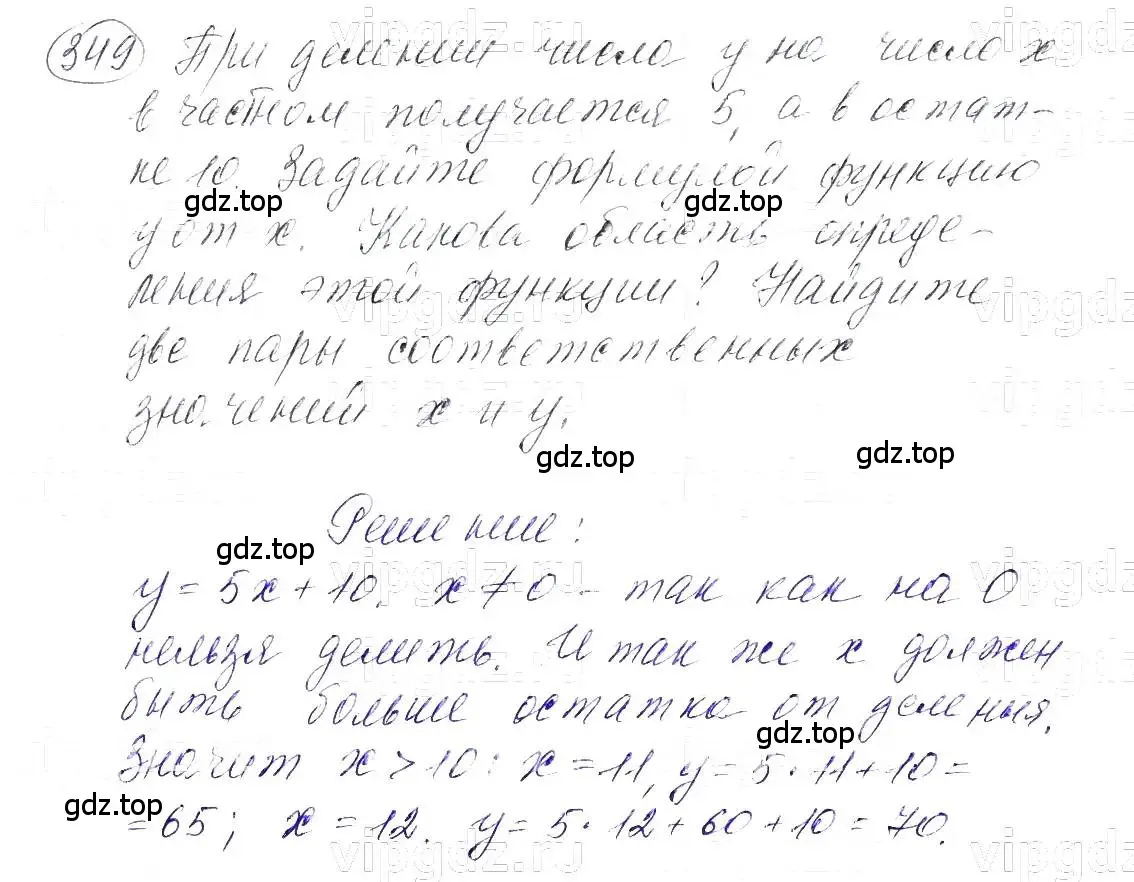 349 При делении числа y на число x
в частном получается 5, а в остат-
ке 10. Задайте формулой функцию
gdz.top gdz.top
y от x. Какова область опреде-
ления этой функции? Найдите
две пары соответственных
значений x и y.
gdz.top gdz.top
Решение:
gdz.top
y = 5x + 10. x ≠ 0 - так как на 0
нельзя делить. И так же x должен
быть больше остатка от деления.
gdz.top
Значит x > 10: x = 11, y = 5·11+10 =
gdz.top
= 65; x = 12. y = 5·12 + 60 + 10 = 70.
vipgdz.ru